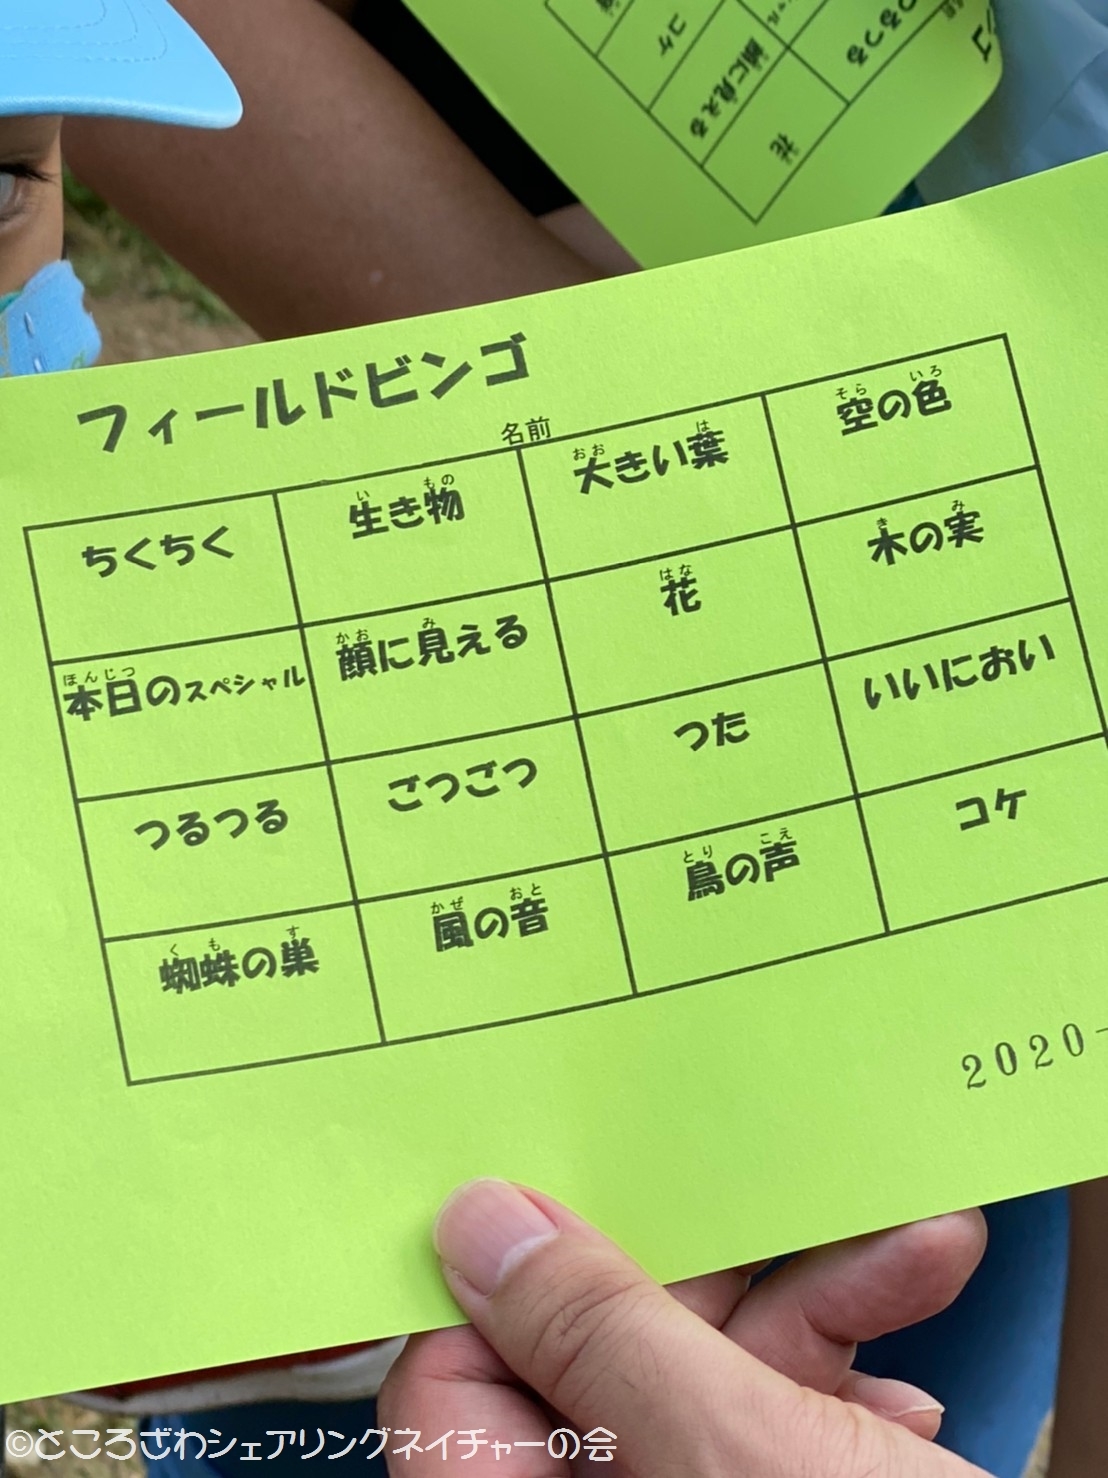 コケ
つるつる
顔に見える
花
フィールドビンゴ
名前
ちくちく 生き物 大きい葉 空の色
本日のスペシャル 顔に見える 花 木の実
つるつる ごつごつ つた いいにおい
蜘蛛の巣 風の音 鳥の声 コケ
2020-
©ところざわシェアリングネイチャーの会